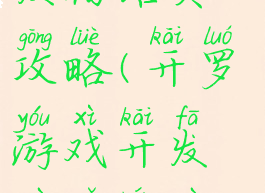 gōng lüè kāi luó
攻略(开罗
yóu xì kāi fā
游戏开发